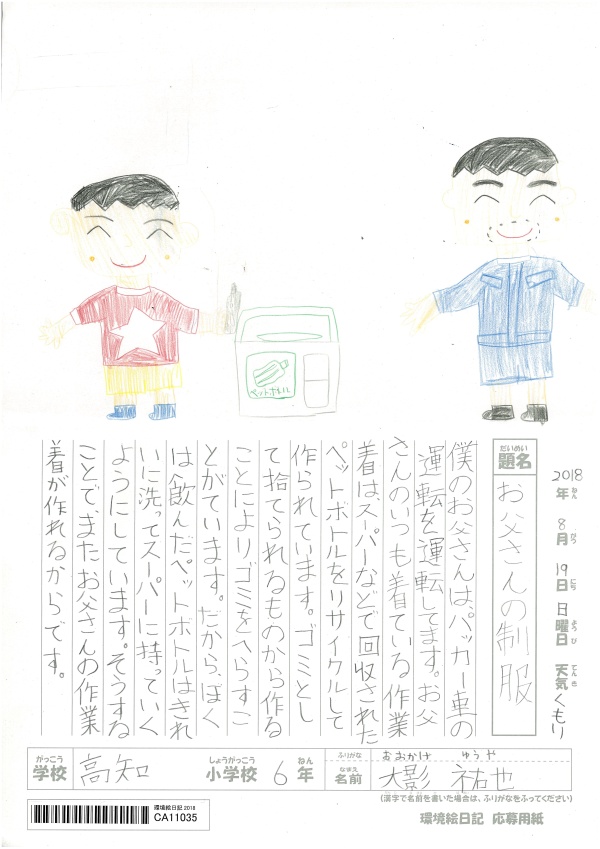 ペットボトル
2018年ねん 8月がつ 19日にち 日曜日ようび 天気てんき くもり
題名だいめい お父さんの制服
僕のお父さんは、パッカー車の
運転を運転してます。お父
さんのいつも着ている作業
着は、スーパーなどで回収された
ペットボトルをリサイクルして
作られています。ゴミとし
て捨てられるものから作る
ことによりゴミをへらすこ
とがています。だから、ぼく
は飲んだペットボトルはきれ
いに洗ってスーパーに持っていく
ようにしています。そうする
ことで、またお父さんの作業
着が作れるからです。
学校がっこう 高知 小学校しょうがっこう 6年ねん
ふりがな おおかけ ゆうや
名前なまえ 大影 祐也
(漢字で名前を書いた場合は、ふりがなをふってください)
環境絵日記2018
CA11035
環境絵日記 応募用紙